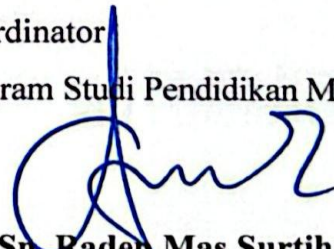 rdinator
ram Studi Pendidikan M
Sn. Raden Mas Surtik